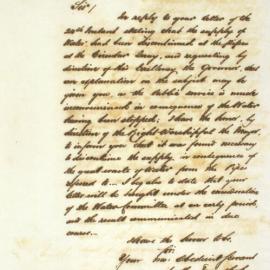 Sir/
In reply to your letter of the
20th Instant stating that the supply of
Water had been discontinued at the pipes
at the Circular Quay, and requesting by
direction of His Excellency, the Governor, that
an explanation on the subject may be
given you, as the public service is much
inconvenienced in consequence of the Water
having been stopped; I have the honor, by
direction of the Right Worshipful the Mayor,
to inform you that it was found necessary
to discontinue the supply, in consequence of
the great waste of Water from the Pipe
referred to... I beg also to state that your
letter will be brought under the consideration
of the Water Committee at an early period,
and the result communicated in due
course...
I have the honor &c.
Sir
Your Obedient Servant